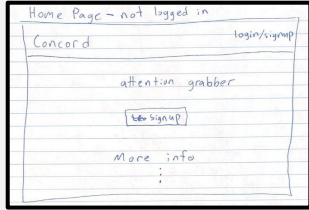 Home Page - not logged in
Concord login/signup
attention grabber
signup
More info